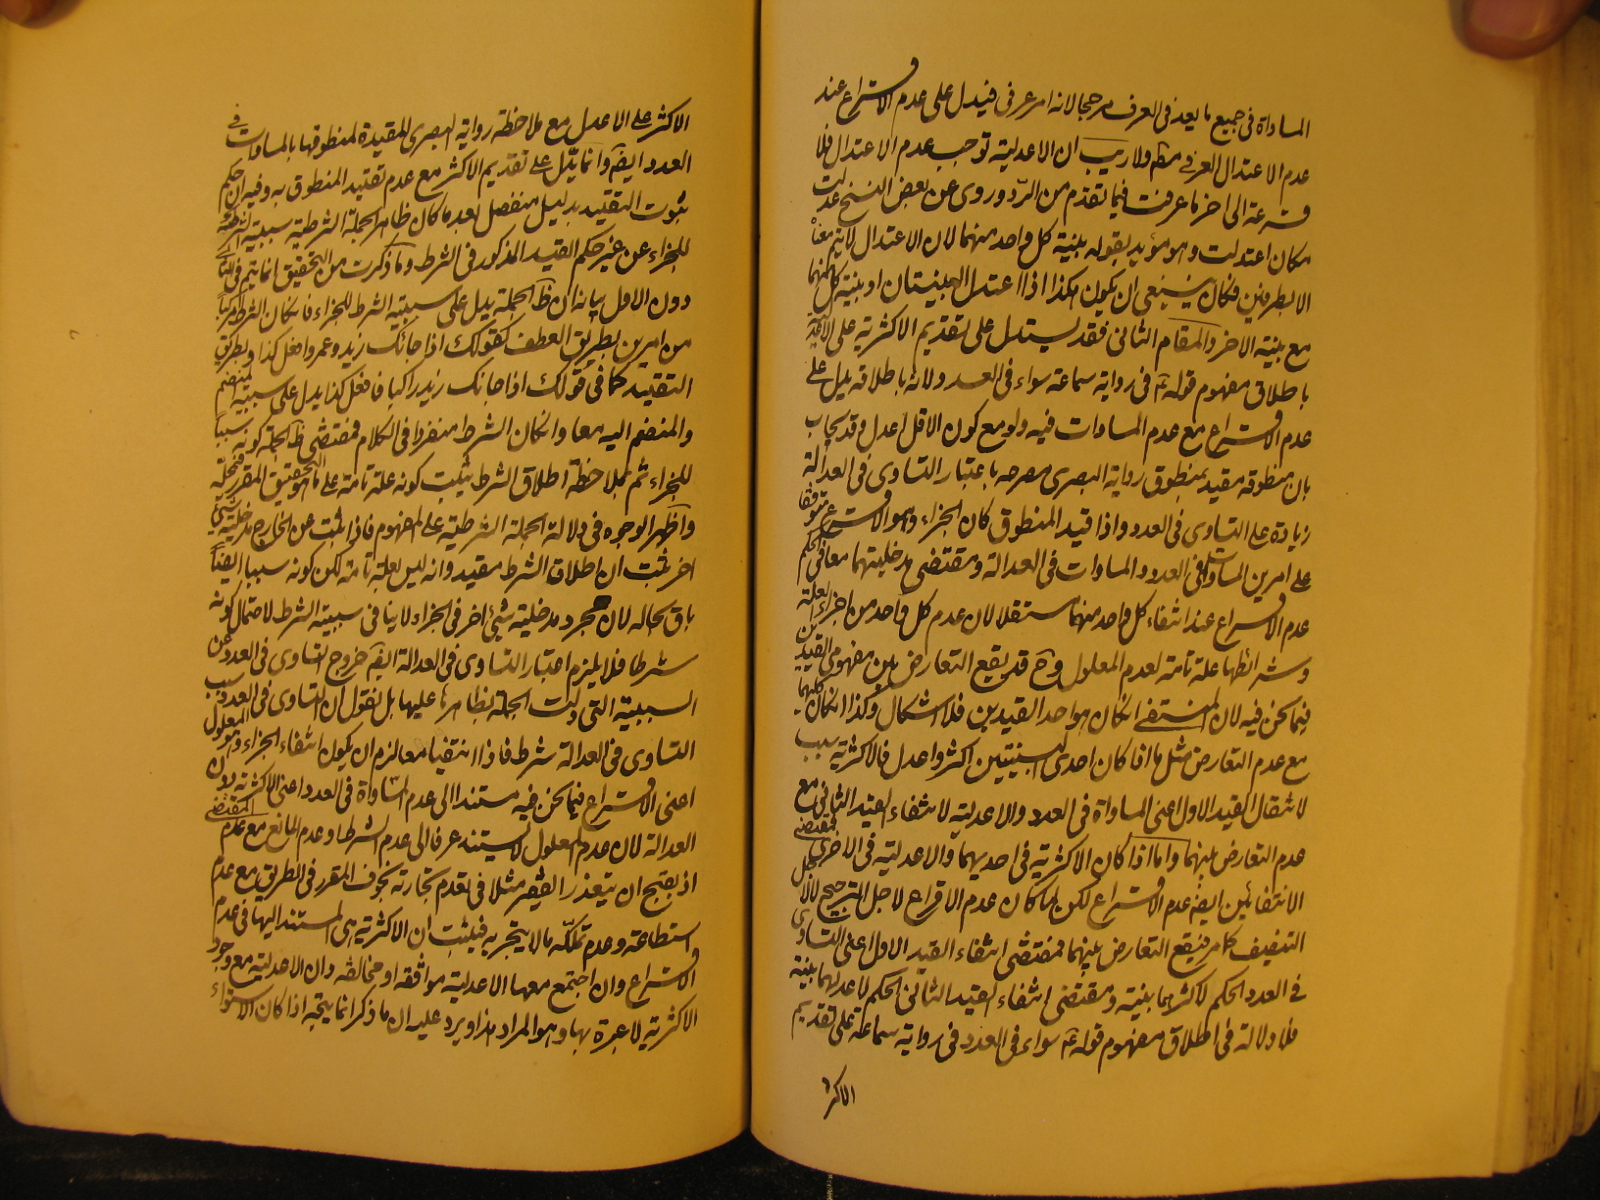 المساواة فى جميع ما يعد فى العرف مرجحا لانه امر عرفى فيدل على عدم الاقتراع عند
عدم الاعتدال العرفى مطم ولا ريب ان الاعدلية توجب عدم الاعتدال فلا
قرعة الى اخر ما عرفت فيما تقدم من الرد وروى عن بعض النسخ عدلت
مكان اعتدلت وهو مؤيد بقوله بينة كل واحد منهما لان الاعتدال لا يتم معناه
الا بطرفين فكان ينبغى ان يكون هكذا اذا اعتدل البينتان او بينة كل منهما
مع بينة الاخر والمقام الثانى فقد يستدل على تقديم الاكثرية على الاعدلية
باطلاق مفهوم قوله ع فى رواية سماعة سواء فى العدد ولانه باطلاقه يدل على
عدم الاقتراع مع عدم المساوات فيه ولو مع كون الاقل اعدل وقد يجاب
بان منطوقه مقيد بمنطوق رواية البصرى مصرحه باعتبار التساوى فى العدالة
زيادة على التساوى فى العدد واذا قيد المنطوق كان الجزاء وهو الاقتراع متوقفا
على امرين المساوات فى العدد والمساوات فى العدالة ومقتضى مدخليتهما معا فى الحكم
عدم الاقتراع عند انتفاء كل واحد منهما مستقلا لان عدم كل واحد من اجزاء العلة
وشرائطها علة تامة لعدم المعلول وح قد يقع التعارض بين مفهومى القيدين
فيما نحن فيه لان المنتفى ان كان هو احد القيدين فلا اشكال وكذا ان كان كليهما
مع عدم التعارض مثل ما اذا كان احدى البينتين اكثر واعدل فالاكثرية سبب
لانتفاء القيد الاول اعنى المساواة فى العدد والاعدلية لانتفاء القيد الثانى مع
عدم التعارض بينهما واما اذا كان الاكثرية فى احديهما والاعدلية فى الاخرى فمقتضى
الانتفائين ايضه عدم الاقتراع لكن لما كان عدم الاقراع لاجل الترجيح لا لاجل
التنصيف كما مر فيقع التعارض بينهما فمقتضى انتفاء القيد الاول اعنى التساوى
فى العدد الحكم لاكثرهما بينة ومقتضى انتفاء القيد الثانى الحكم لاعدلهما بينة
فلا دلالة فى اطلاق مفهوم قوله ع سواء فى العدد فى رواية سماعة على تقديم
الاكثر
الاكثر على الاعدل مع ملاحظة رواية البصرى المقيدة لمنطوقها بالمساوات فى
العدد ايضه وانما يدل على تقديم الاكثر مع عدم تقييد المنطوق به وفيه ان حكم
ثبوت التقييد بدليل منفصل بعد ما كان ظاهر الجملة الشرطية سببية الشرط
للجزاء عن غير حكم القيد المذكور فى الشرط وما ذكرت من التحقيق انما يتم فى الثانى
دون الاول بيانه ان ظ الجملة يدل على سببية الشرط للجزاء فان كان الشرط مركبا
من امرين بطريق العطف كقولك اذا جائك زيد وعمرو افعل كذا وبطريق
التقييد كما فى قولك اذا جائك زيد راكبا فافعل كذا يدل على سببية المنضم
والمنضم اليه معا وان كان الشرط منفردا فى الكلام فمقتضى ظ الجملة كونه سببا
للجزاء ثم بملاحظة اطلاق الشرط يثبت كونه علة تامة على ما هو التحقيق المقرر فى محله
واظهر الوجوه فى دلالة الجملة الشرطية على المفهوم فاذا ثبت من الخارج مدخلية شىء
اخر ثبت ان اطلاق الشرط مقيد وانه ليس بعلة تامة لكن كونه سببا ايضا
باق بحاله لان مجرد مدخلية شىء اخر فى الجزاء لا ينافى سببية الشرط لاحتمال كونه
شرطا فلا يلزم اعتبار التساوى فى العدالة ايضه خروج التساوى فى العدد عن
السببية التى دلت الجملة بظاهرها عليها بل نقول ان التساوى فى العدد سبب
التساوى فى العدالة شرط فاذا انتفيا معا لزم ان يكون انتفاء الجزاء وهو المعلول
اعنى الاقتراع فيما نحن فيه مستندا الى عدم المساواة فى العدد اعنى الاكثرية دون
العدالة لان عدم المعلول لا يستند عرفا الى عدم الشرط او عدم المانع مع عدم المقتضى
اذ يقبح ان يتعذر الفقير مثلا فى عدم تجارته بخوف المقرر فى الطريق مع عدم
استطاعته وعدم تملكه ما لا يتجر به فيثبت ان الاكثرية هى المستند اليها فى عدم
الاقتراع وان اجتمع معها الاعدلية موافقة او مخالفة وان الاعدلية مع وجود
الاكثرية لا عبرة بها وهو المراد هذا ويرد عليه ان ما ذكر انما يتجه اذا كان الاستواء